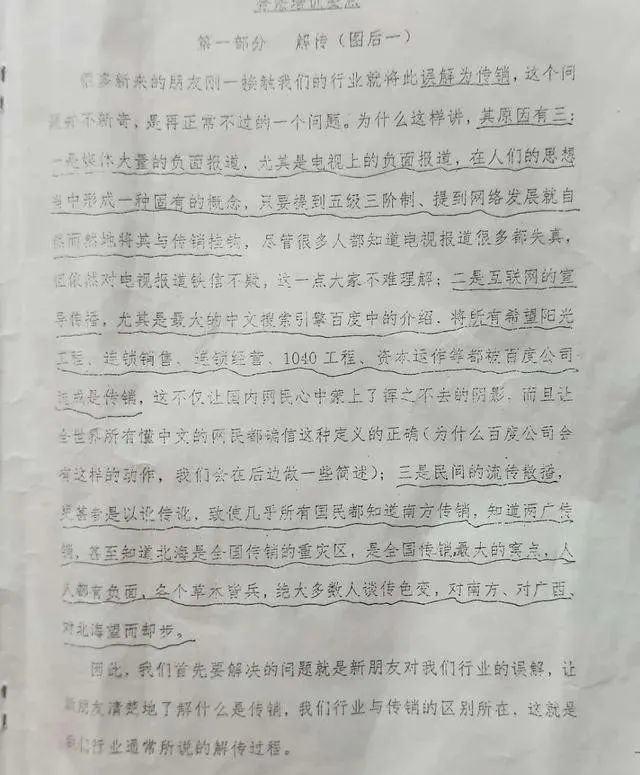 第一部分 解传（图后一）
很多新来的朋友刚一接触我们的行业就将此误解为传销，这个问
并不新奇，是再正常不过的一个问题。为什么这样讲，其原因有三：
一是媒体大量的负面报道．尤其是电视上的负面报道，在人们的思想
当中形成一种固有的概念，只要提到五级三阶制、提到网络发展就自
然而然地将其与传销挂钩，尽管很多人都知道电视报道很多都失真，
但依然对电视报道铁信不疑，这一点大家不难理解；二是互联网的宣
导传播，尤其是最大的中文搜索引擎百度中的介绍．将所有希望阳光
工程、连锁销售、连锁经营、1040工程、资本运作等都被百度公司
或是传销，这不仅让国内网民心中蒙上了挥之不去的阴影，而且让
全世界所有懂中文的网民都确信这种定义的正确（为什么百度公司会
有这样的动作，我们会在后边做一些简述）；三是民间的流传散播，
更甚者是以讹传讹，致使几乎所有国民都知道南方传销，知道两广传
销，甚至知道北海是全国传销的重灾区，是全国传销最大的窝点，人
人都有负面，各个草木皆兵，绝大多数人谈传色变，对南方、对广西、
对北海望而却步。
因此，我们首先要解决的问题就是新朋友对我们行业的误解，让
新朋友清楚地了解什么是传销，我们行业与传销的区别所在，这就是
我们行业通常所说的解传过程。